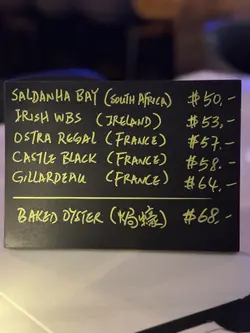 SALDANHA BAY (SOUTH AFRICA) $50.-
IRISH WBS (IRELAND) $53.-
OSTRA REGAL (FRANCE) $57.-
CASTLE BLACK (FRANCE) $58.-
GILLARDEAU (FRANCE) $64.-
BAKED OYSTER (焗蠔) $68.-